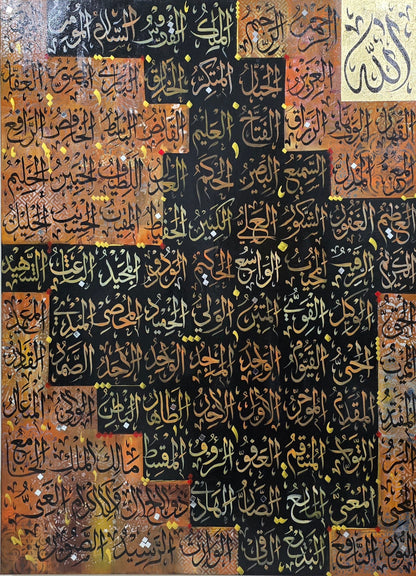 الله
الرحمن الرحيم الملك القدوس السلام المؤمن
العزيز الجبار المتكبر الخالق البارئ المصور الغفار
القهار الوهاب الرزاق الفتاح العليم القابض الباسط الخافض الرافع
المعز المذل السميع البصير الحكم العدل اللطيف الخبير الحليم
العظيم الغفور الشكور العلي الكبير الحفيظ المقيت الحسيب الجليل
الكريم الرقيب المجيب الواسع الحكيم الودود المجيد الباعث الشهيد
الحق الوكيل القوي المتين الولي الحميد المحصي المبدئ المعيد
الحي القيوم الواجد الماجد الواحد الأحد الصمد القادر
المقتدر المقدم المؤخر الأول الآخر الظاهر الباطن الوالي المتعال
البر التواب المنتقم العفو الرؤوف المقسط مالك الملك الجامع
المغني المانع الضار الهادي ذو الجلال والإكرام الغني
النور النافع البديع الباقي الوارث الرشيد الصبور